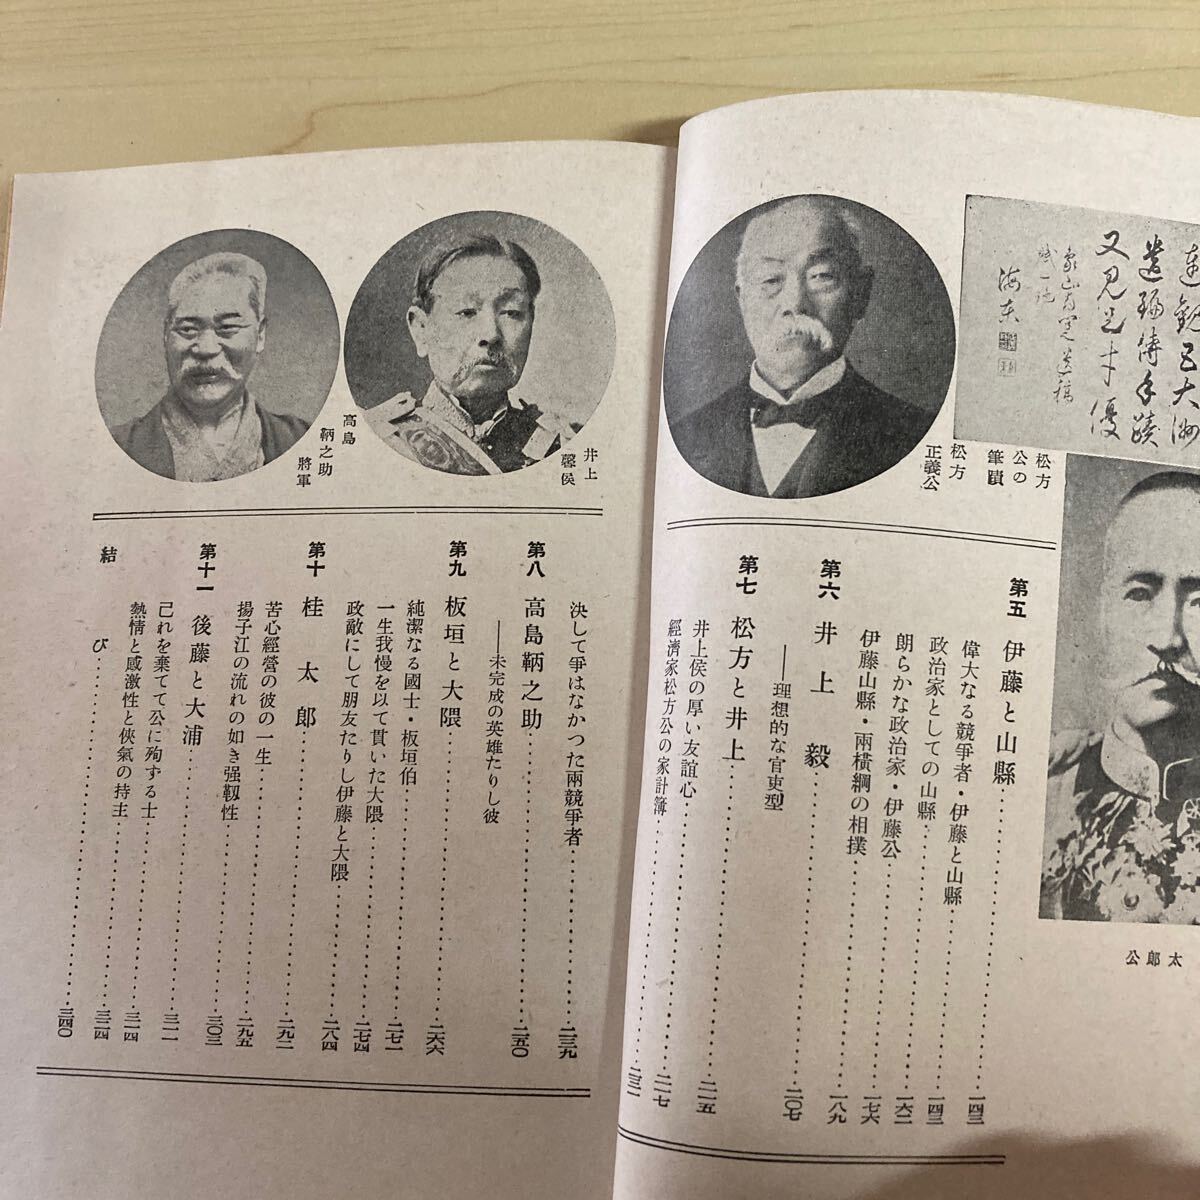 又見
海東
松方
公の
筆蹟
太郎公
松方
正義公
第五 伊藤と山縣…………一四三
偉大なる競爭者・伊藤と山縣…………一四三
政治家としての山縣…………一六二
朗らかな政治家・伊藤公…………一七六
伊藤山縣・兩橫綱の相撲…………一八九
第六 井上毅…………二〇七
――理想的な官吏型
第七 松方と井上…………二一五
井上侯の厚い友誼心…………二一七
經濟家松方公の家計簿…………二三一
井上
馨侯
高島
鞆之助
將軍
決して爭はなかつた兩競爭者…………二三九
第八 高島鞆之助…………二五〇
――未完成の英雄たりし彼
第九 板垣と大隈…………二六六
純潔なる國士・板垣伯…………二七一
一生我慢を以て貫いた大隈…………二七四
政敵にして朋友たりし伊藤と大隈…………二八四
第十 桂太郎…………二九二
苦心經營の彼の一生…………二九五
揚子江の流れの如き强靱性…………三〇三
第十一 後藤と大浦…………三一一
己れを棄てて公に殉ずる士…………三一四
熱情と感激性と俠氣の持主…………三二四
結び…………三四〇